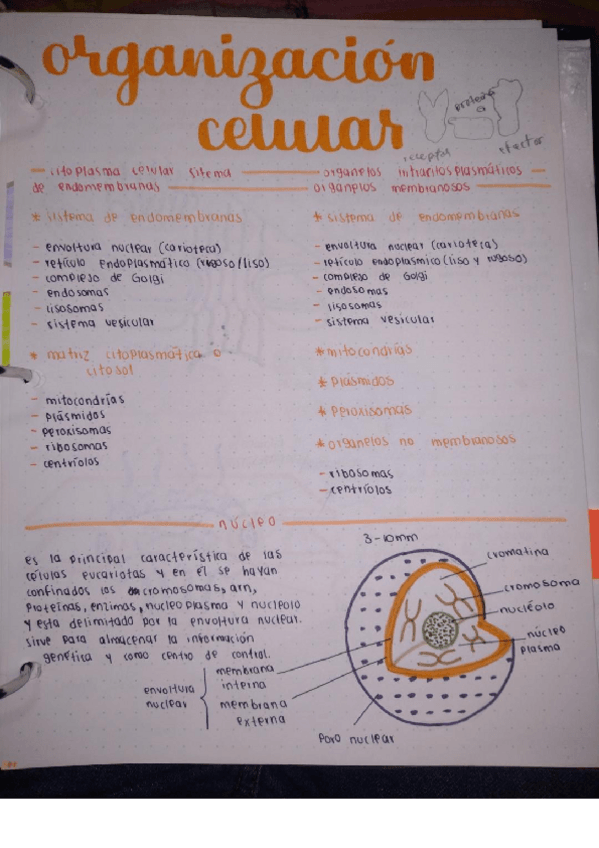 organización
celular
proteina
G
receptor
efector
citoplasma celular sitema
de endomembranas
* sistema de endomembranas
- envoltura nuclear (carioteca)
- retículo Endoplasmático (rugoso/liso)
- complejo de Golgi
- endosomas
- lisosomas
- sistema vesicular
* matriz citoplasmática o
citosol
- mitocondrías
- plásmidos
- peroxisomas
- ribosomas
- centríolos
organelos intracitosplasmáticos
organelos membranosos
* sistema de endomembranas
- envoltura nuclear (carioteca)
- retículo endoplásmico (liso y rugoso)
- complejo de Golgi
- endosomas
- lisosomas
- sistema vesicular
* mitocondrías
* plásmidos
* peroxisomas
* organelos no membranosos
- ribosomas
- centríolos
núcleo
es la principal característica de las
células eucariotas y en el se hayan
confinados los cromosomas, arn,
proteínas, enzimas, nucleoplasma y nucleolo
y esta delimitado por la envoltura nuclear.
sirve para almacenar la información
genética y como centro de control.
3-10mm
cromatina
cromosoma
nucléolo
núcleo
plasma
envoltura
nuclear
membrana
interna
membrana
externa
Poro nuclear